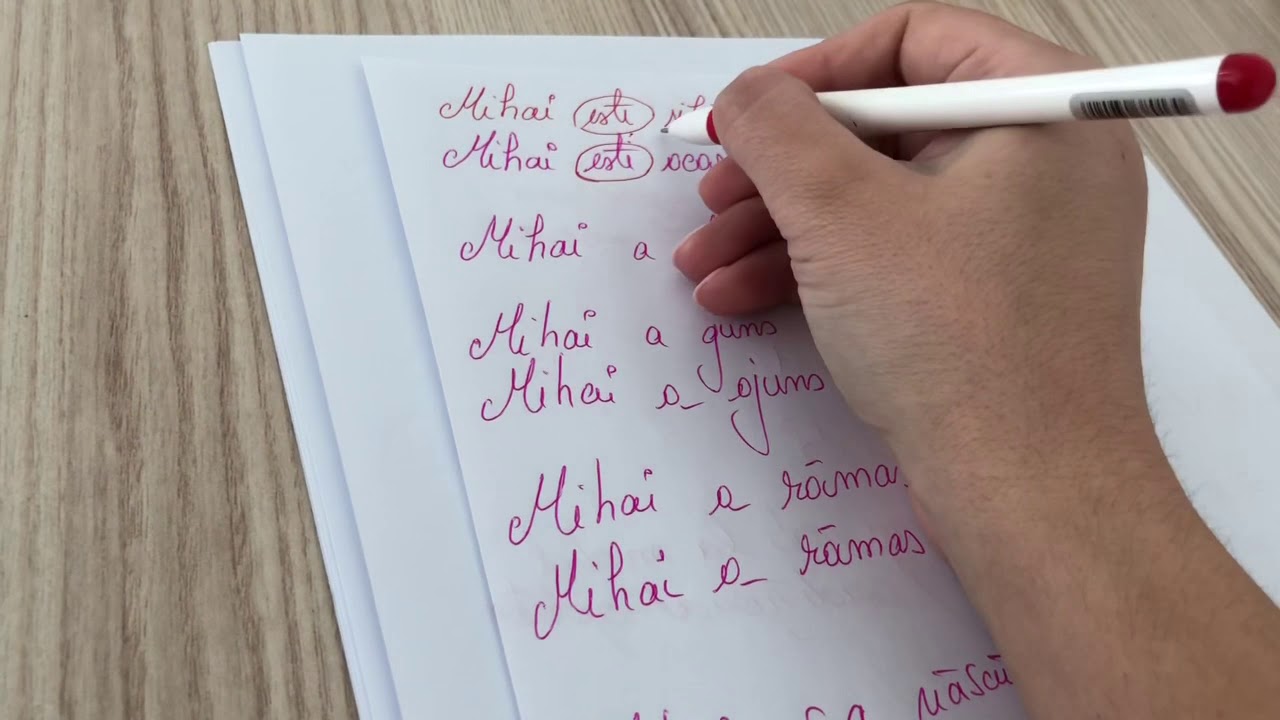 Mihai este
Mihai este acas
Mihai a
Mihai a guns
Mihai a ajuns
Mihai a rămas
Mihai a rămas
născu